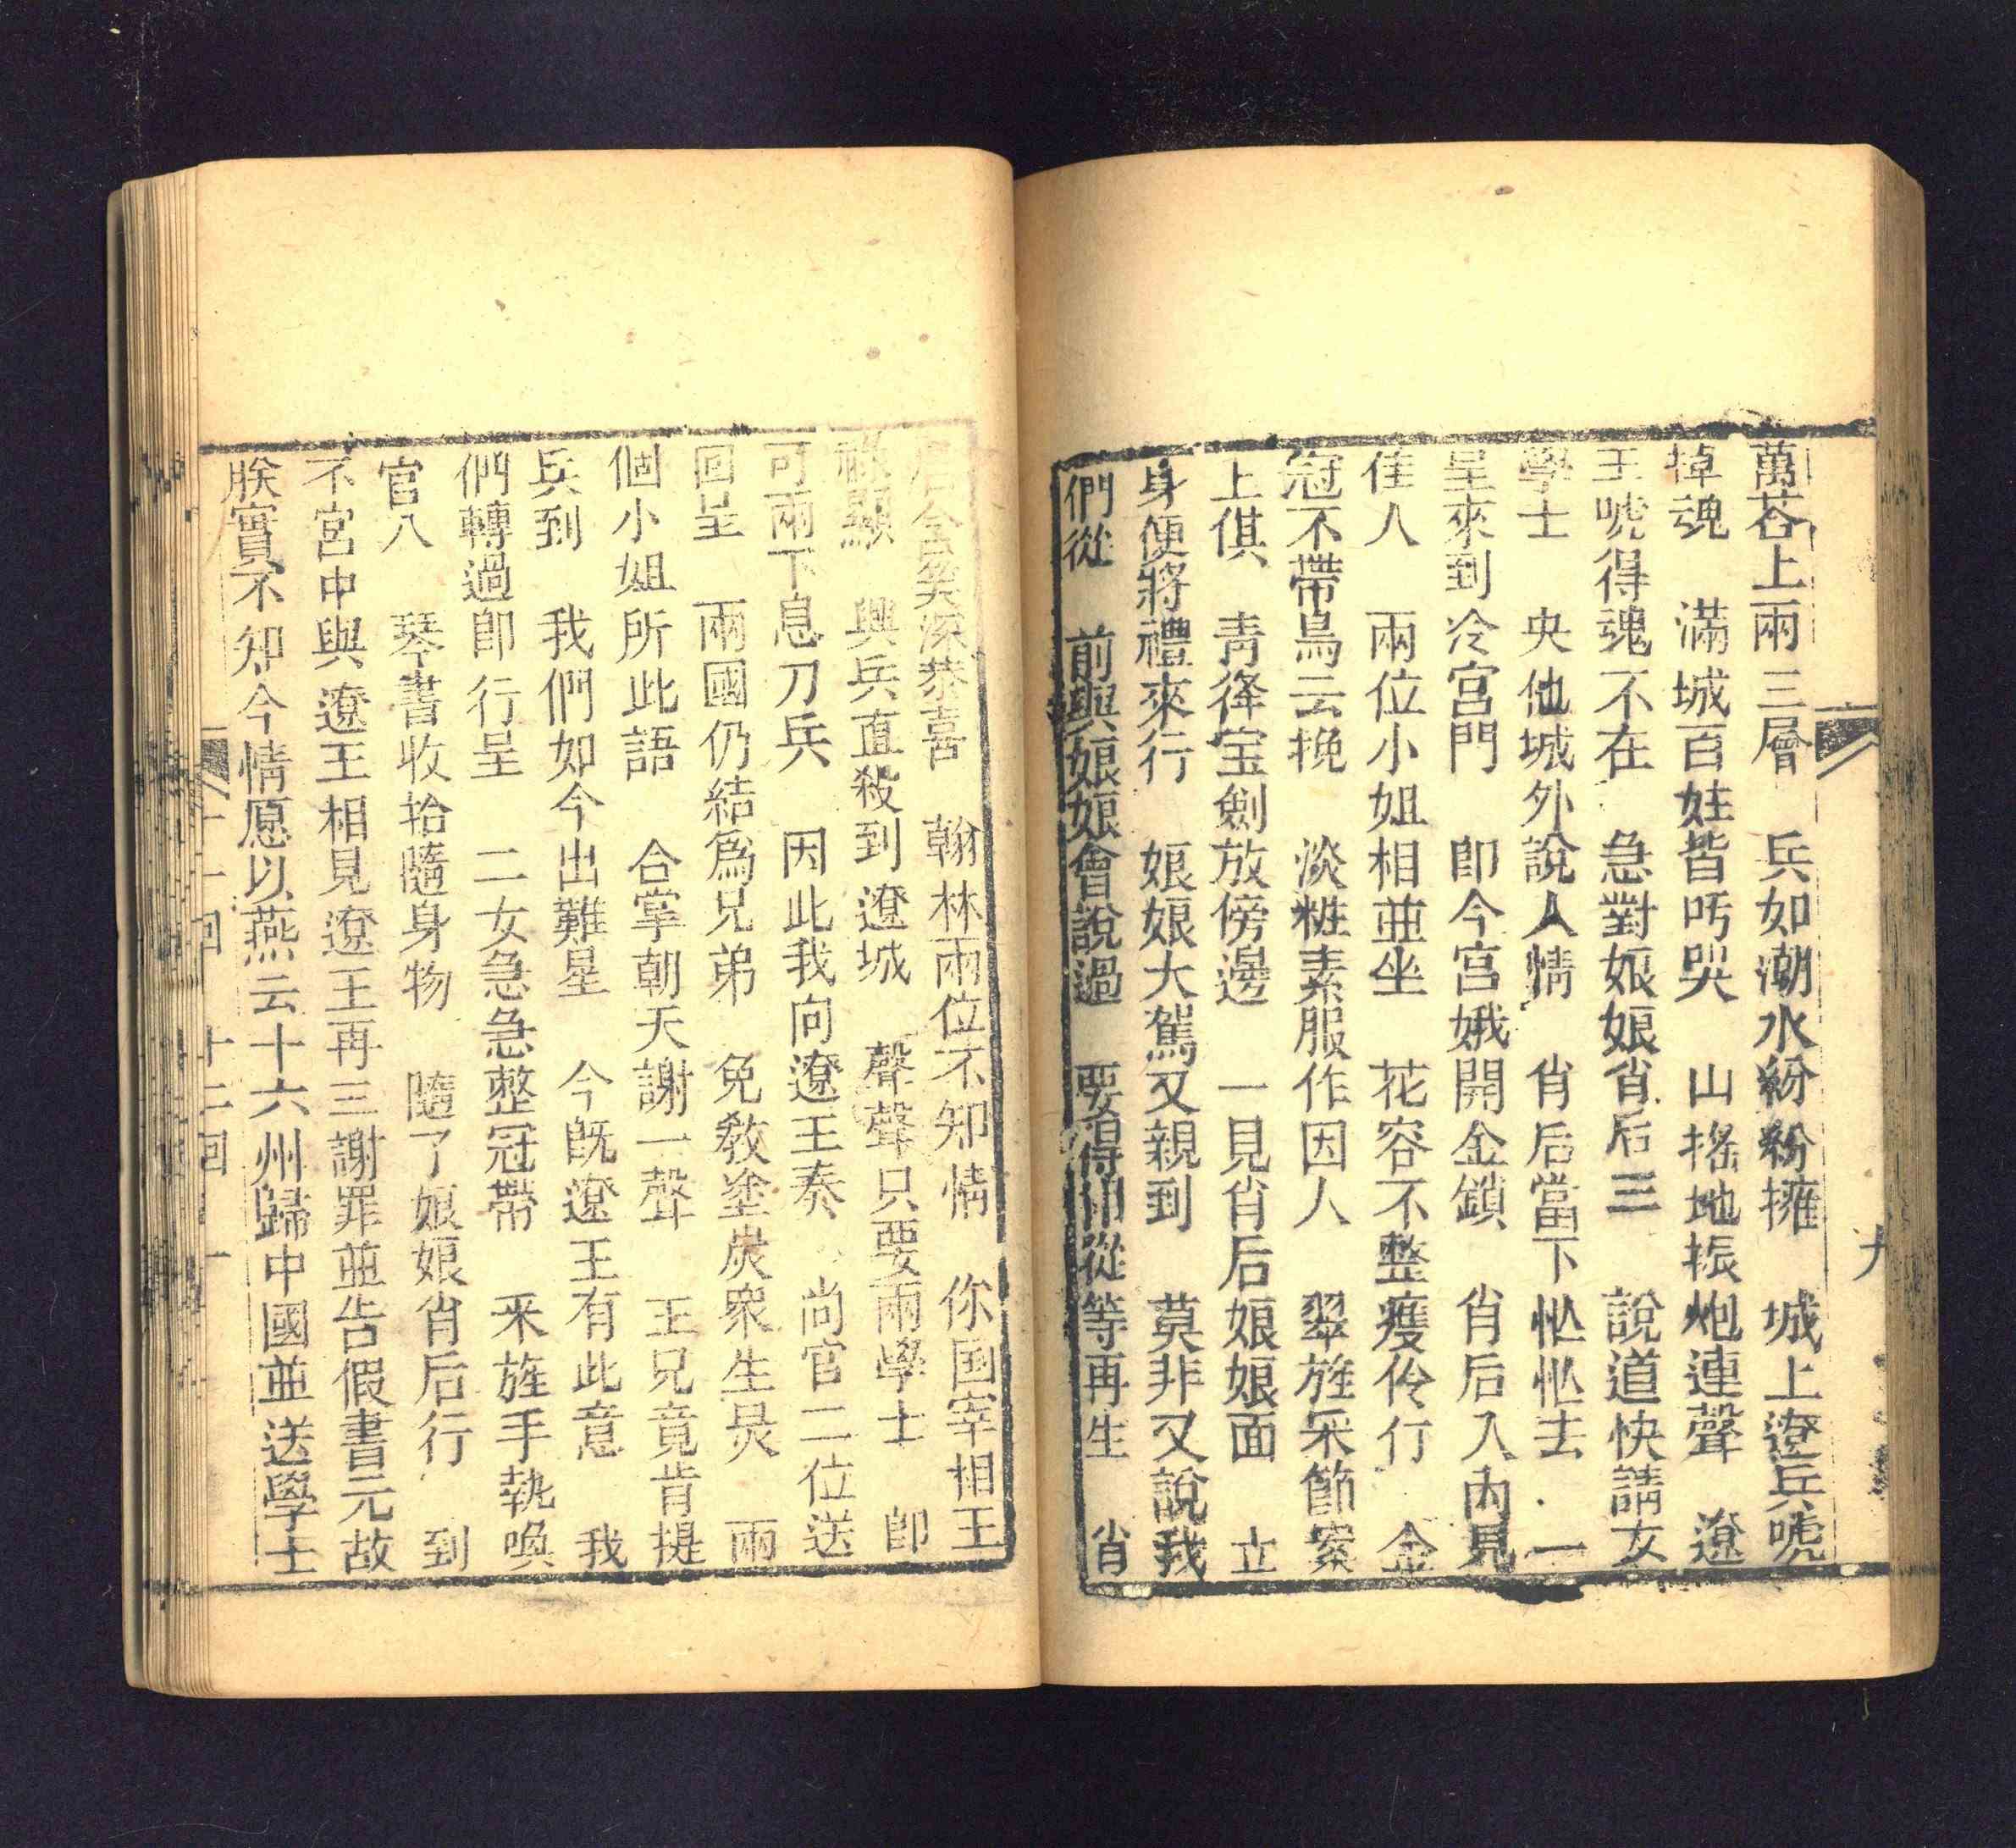 萬苔上兩三層　兵如潮水紛紛擁　城上遼兵唬
掉魂　滿城百姓皆呌哭　山搖地振炮連聲　遼
王唬得魂不在　急對娘娘肖后三　說道快請女
學士　央他城外說人情　肖后當下怭怭去　一
呈來到冷宮門　即今宮娥開金鎖　肖后入內見
佳人　兩位小姐相並坐　花容不整瘦伶行　金
冠不帶烏云挽　淡粧素服作因人　翠旌采節案
上供　青絳宝劍放傍邊　一見肖后娘娘面　立
身便將禮來行　娘娘大駕又親到　莫非又說我
們從　前與娘娘會說過　要得從等再生　肖
九
后含笑深恭喜　翰林兩位不知情　你国宰相王
顯　興兵直殺到遼城　聲聲只要兩學士　即
可兩下息刀兵　因此我向遼王奏　尚官二位送
回呈　兩國仍結爲兄弟　免教塗炭衆生灵　兩
個小姐所此語　合掌朝天謝一聲　王兄竟肯提
兵到　我們如今出難星　今既遼王有此意　我
們轉過即行呈　二女急急整冠帶　采旌手執喚
官八　琴書收拾隨身物　隨了娘娘肖后行　到
不宮中與遼王相見遼王再三謝罪並告假書元故
朕實不知今情愿以燕云十六州歸中國並送學士
十一回　十二回　一